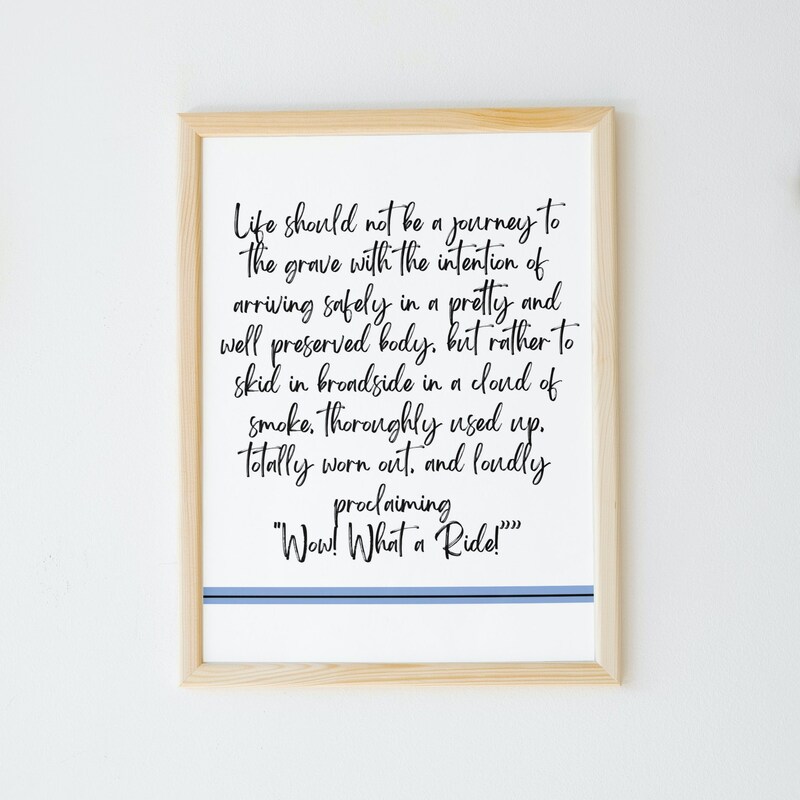 Life should not be a journey to
the grave with the intention of
arriving safely in a pretty and
well preserved body, but rather to
skid in broadside in a cloud of
smoke, thoroughly used up,
totally worn out, and loudly
proclaiming
"Wow! What a Ride!””